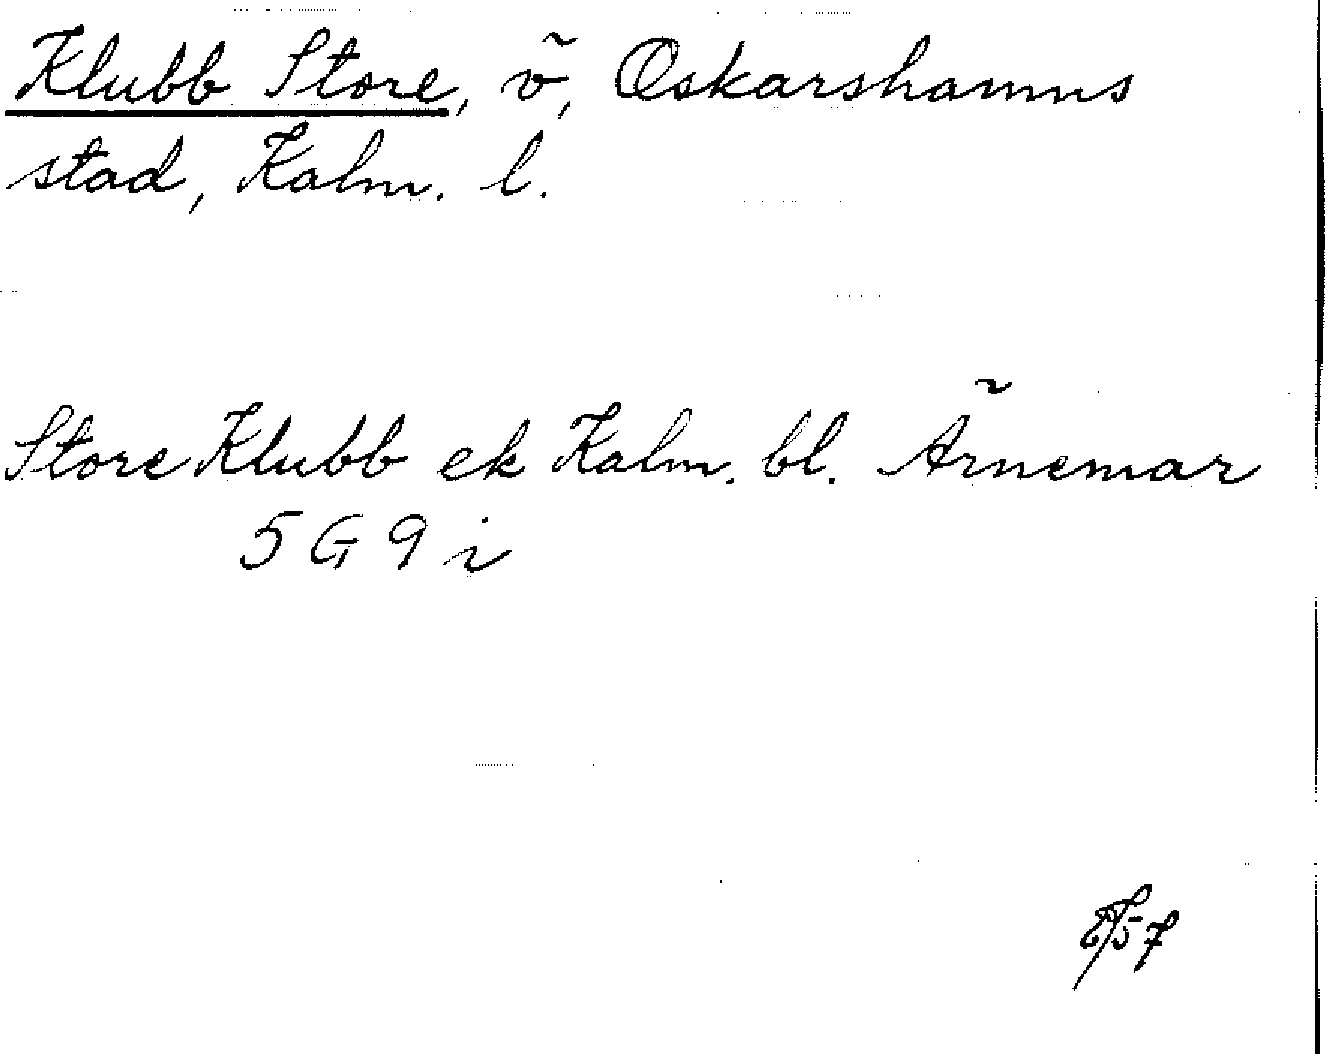 Klubb Store, ö, Oskarshamns
stad, Kalm. l.
Store Klubb ek Kalm. bl. Ärnemar
5 G 9 i